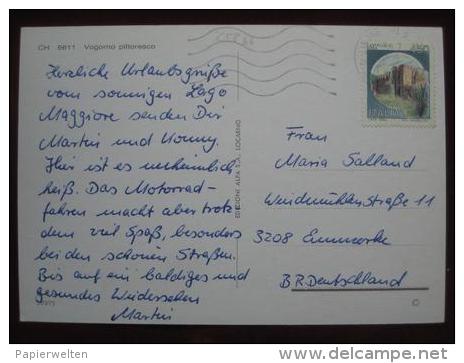 CH 6611 Vogorno pittoresco
Herzliche Urlaubsgrüße
vom sonnigen Lago
Maggiore senden Dir
Martin und Konny.
Hier ist es unheimlich
heiß. Das Motorrad-
fahren macht aber trotz
dem viel Spaß, besonders
bei den schönen Straßen.
Bis auf ein baldiges und
gesundes Wiedersehen
Martin
EDIZIONE ALFA S.A. LOCARNO
ITALIA
Frau
Maria Salland
Windmühlen Straße 11
3208 Emmerke
BR.Deutschland
©
© Papierwelten
http://www.delcampe.net